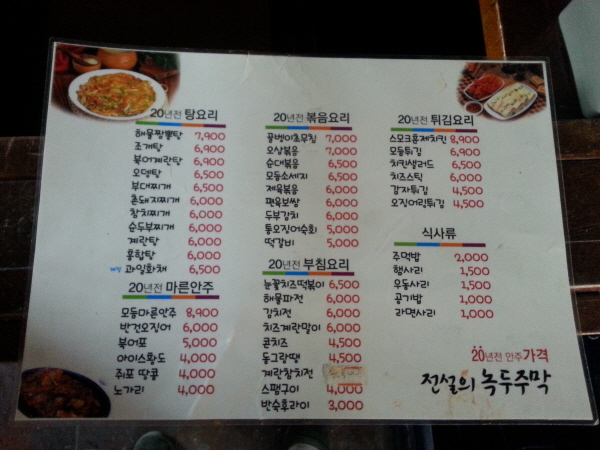 20년전 탕요리
해물짬뽕탕 7,900
조개탕 6,900
북어계란탕 6,900
오뎅탕 6,500
부대찌개 6,500
촌돼지찌개 6,000
참치찌개 6,000
순두부찌개 6,000
계란탕 6,000
홍합탕 6,000
과일화채 6,500
20년전 마른안주
모듬마른안주 8,900
반건오징어 6,000
북어포 5,000
아이스황도 4,000
쥐포 땅콩 4,000
노가리 4,000
20년전 볶음요리
골뱅이초무침 7,000
오삼볶음 7,000
순대볶음 6,500
모듬소세지 6,500
제육볶음 6,000
편육보쌈 6,000
두부김치 6,000
통오징어숙회 5,000
떡갈비 5,000
20년전 부침요리
눈꽃치즈떡볶이 6,500
해물파전 6,000
김치전 6,000
치즈계란말이 6,000
콘치즈 4,500
동그랑땡 4,500
계란참치전
스팸구이 4,000
반숙후라이 3,000
20년전 튀김요리
스모크훈제치킨 8,900
모듬튀김 6,900
치킨샐러드 6,500
치즈스틱 6,000
감자튀김 4,500
오징어링튀김 4,500
식사류
주먹밥 2,000
햄사리 1,500
우동사리 1,500
공기밥 1,000
라면사리 1,000
20년전 안주가격
전설의 녹두주막